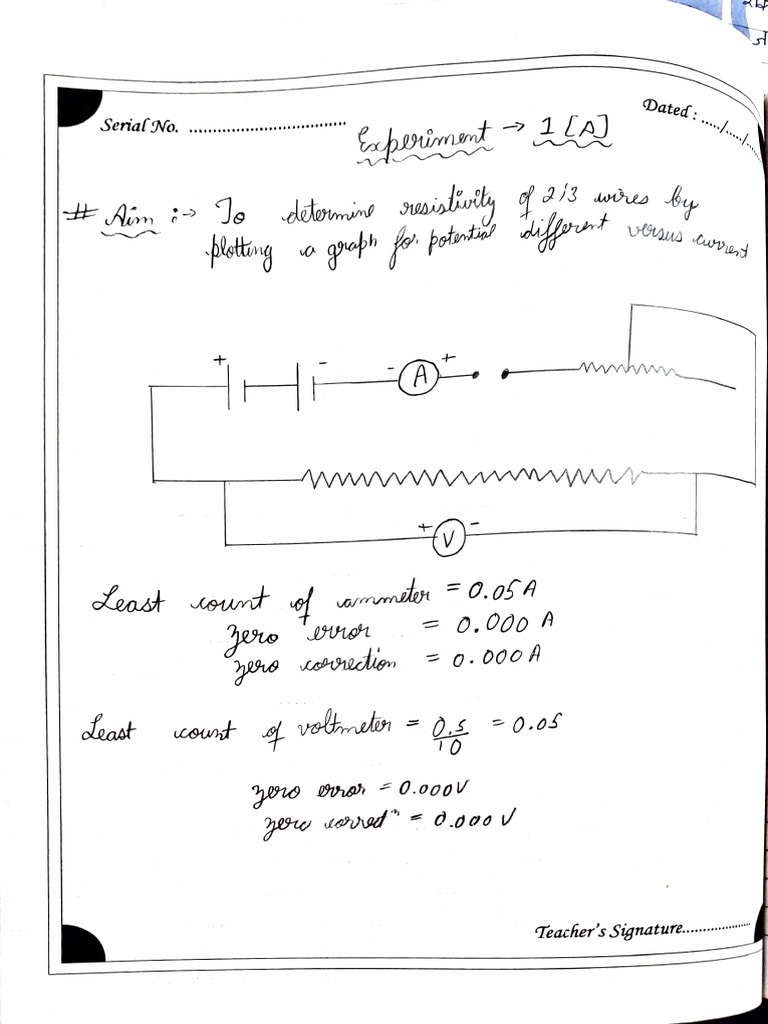 Serial No. ................................
Dated : ...../...../...
Experiment → 1 [A]
# Aim :→ To determine resistivity of 2/3 wires by
plotting a graph for potential different versus current
+ - - A +
+ V -
Least count of ammeter = 0.05A
zero error = 0.000 A
zero correction = 0.000 A
Least count of voltmeter = 0.5/10 = 0.05
zero error = 0.000V
zero correctⁿ = 0.000 V
Teacher's Signature..................